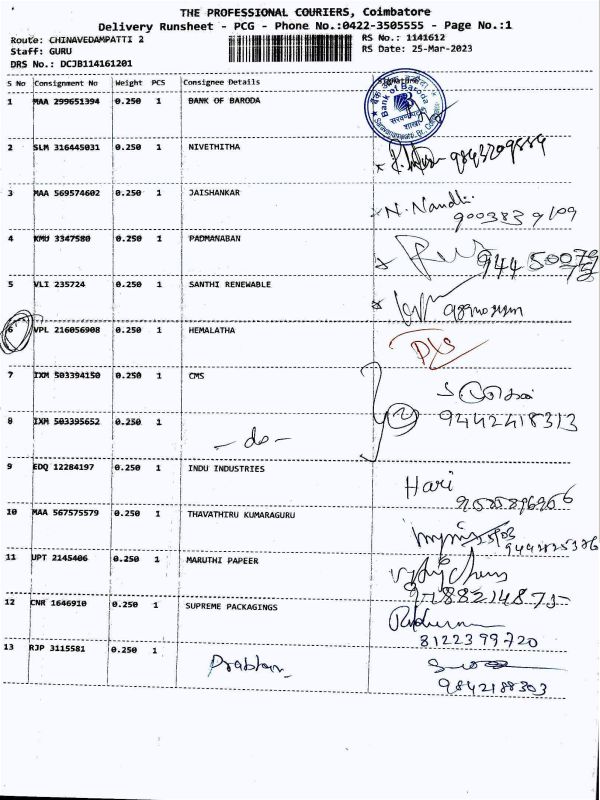 THE PROFESSIONAL COURIERS, Coimbatore
Delivery Runsheet - PCG - Phone No.:0422-3505555 - Page No.:1
Route: CHINAVEDAMPATTI 2 RS No.: 1141612
Staff: GURU RS Date: 25-Mar-2023
DRS No.: DCJB114161201
S No Consignment No Weight PCS Consignee Details Signature
1 MAA 299651394 0.250 1 BANK OF BARODA
Bank of Baroda
2 SLM 316445031 0.250 1 NIVETHITHA
3 MAA 569574602 0.250 1 JAISHANKAR N. Nandhi
4 KMU 3347580 0.250 1 PADMANABAN
5 VLI 235724 0.250 1 SANTHI RENEWABLE
6 VPL 216056908 0.250 1 HEMALATHA
7 IXM 503394150 0.250 1 CMS
9442418313
8 IXM 503395652 0.250 1 - do -
9 EDQ 12284197 0.250 1 INDU INDUSTRIES Hari
10 MAA 567575579 0.250 1 THAVATHIRU KUMARAGURU
11 UPT 2145406 0.250 1 MARUTHI PAPEER
12 CNR 1646910 0.250 1 SUPREME PACKAGINGS
8122399720
13 RJP 3115581 0.250 1
9842188303